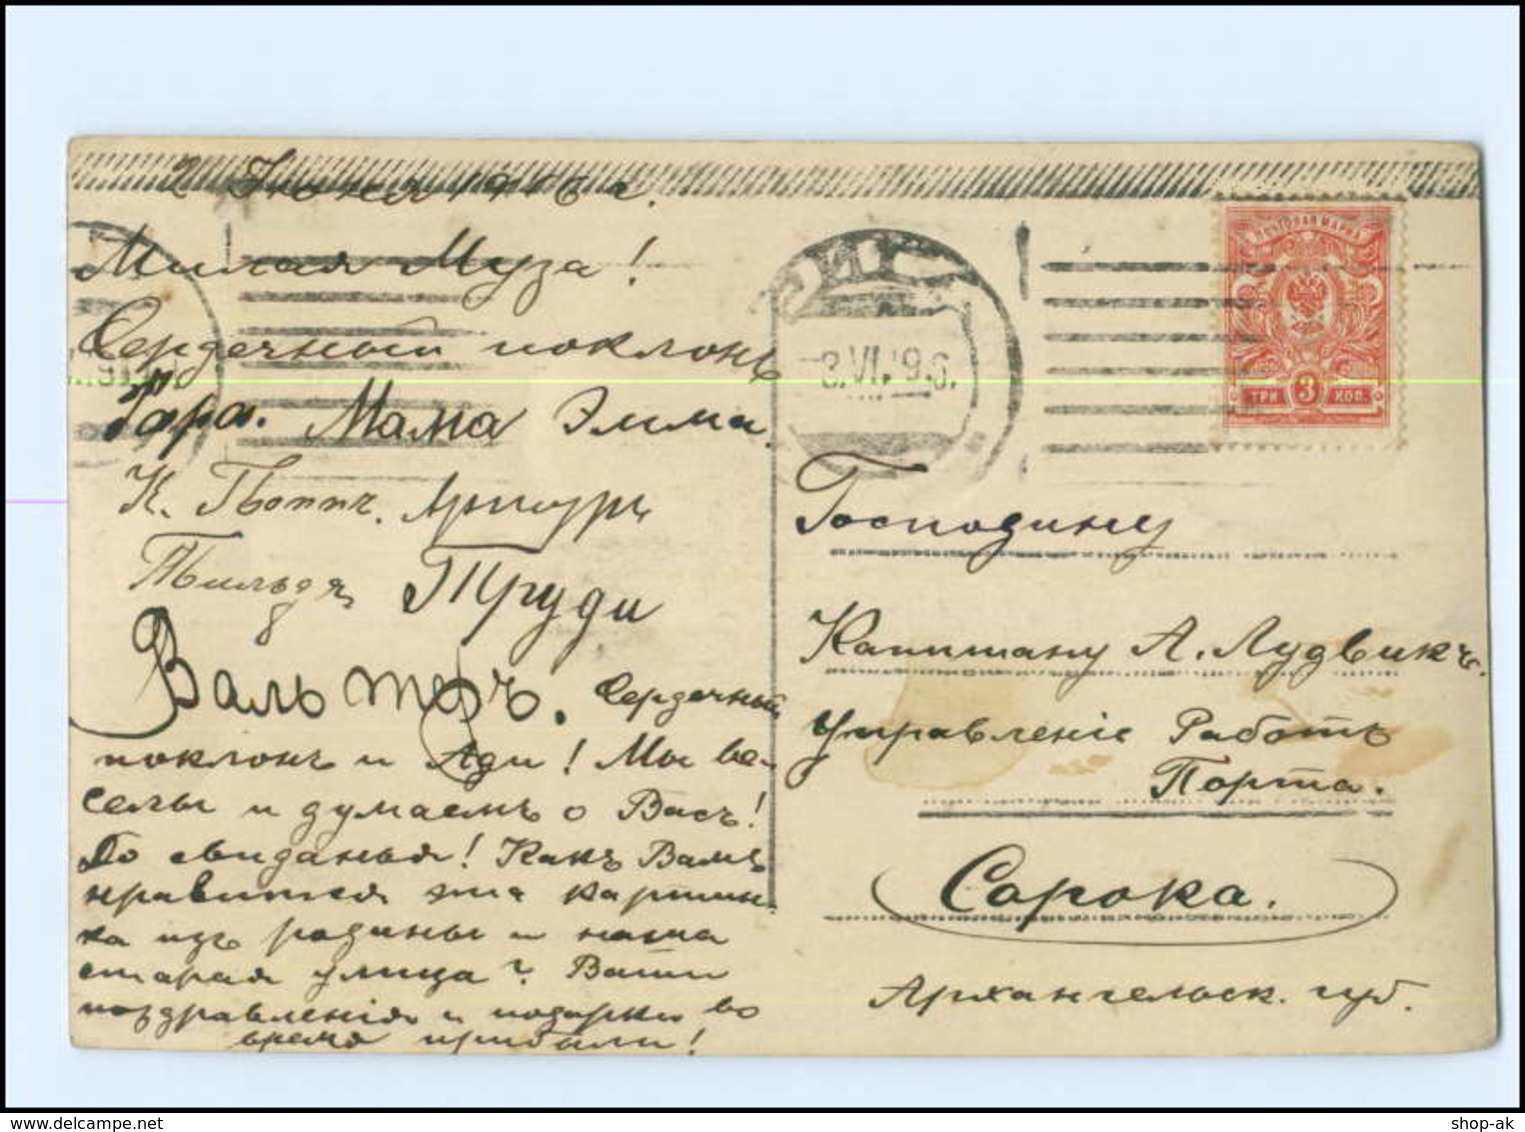 2 Июня 1916 г.
Милая Муза!
Сердечный поклонъ
Мама Элима.
К. Артуръ
Тильда Труди
Вальтеръ. Сердечный
поклонъ и Ади! Мы ве-
селы и думаемъ о Васъ!
До свиданья! Какъ Вамъ
нравится эта картин-
ка изъ родины и наша
старая улица? Ваши
поздравленія и подарки во
время прибыли!
8.VI.9 6.
ПОЧТОВАЯ МАРКА
ТРИ 3 КОП.
Господину
Капитану А. Лудвикъ.
Управленіе Работъ
Порта.
Сорока.
Архангельск. губ.
shop-ak